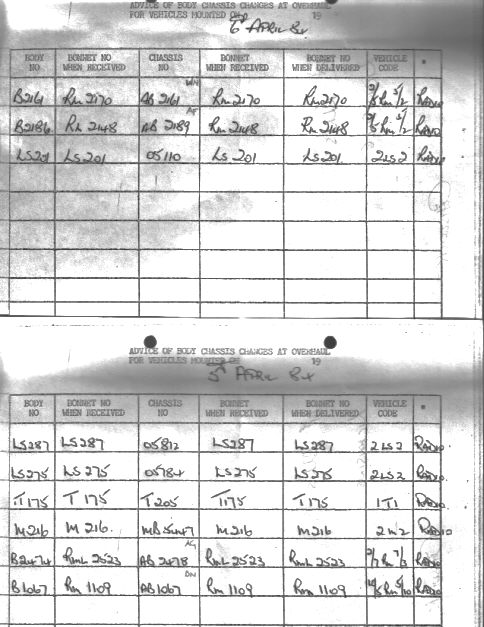 ADVICE OF BODY CHASSIS CHANGES AT OVERHAUL
FOR VEHICLES MOUNTED 19
6 APRIL 84
BODY NO BONNET NO WHEN RECEIVED CHASSIS NO BONNET WHEN RECEIVED BONNET NO WHEN DELIVERED VEHICLE CODE *
B2161 Rm 2170 AB 2161 Rm 2170 Rm 2170 RADIO
B2186 Rm 2148 AB 2189 Rm 2148 Rm 2148 RADIO
LS201 LS201 05110 LS 201 LS201 2LS2 RADIO
ADVICE OF BODY CHASSIS CHANGES AT OVERHAUL
FOR VEHICLES MOUNTED 19
5 APRIL 84
BODY NO BONNET NO WHEN RECEIVED CHASSIS NO BONNET WHEN RECEIVED BONNET NO WHEN DELIVERED VEHICLE CODE *
LS287 LS287 05812 LS287 LS287 2LS2 RADIO
LS275 LS275 05784 LS275 LS275 2LS2 RADIO
T175 T175 T205 T175 T175 1T1 RADIO
M216 M 216. MB 5447 M216 M216 2M2 RADIO
B2474 RmL 2523 AB 2478 RmL 2523 RmL 2523 RADIO
B1067 Rm 1109 AB1067 Rm 1109 Rm 1109 RADIO